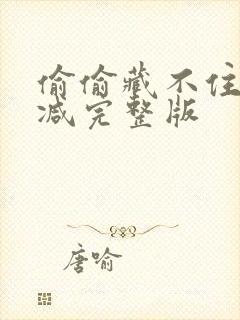 偷偷藏不住
减完整版
唐喻